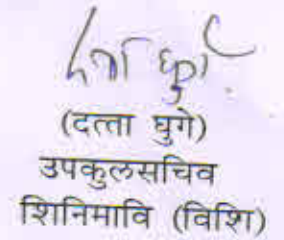 (दत्ता घुगे)
उपकुलसचिव
शिनिमावि (विशि)